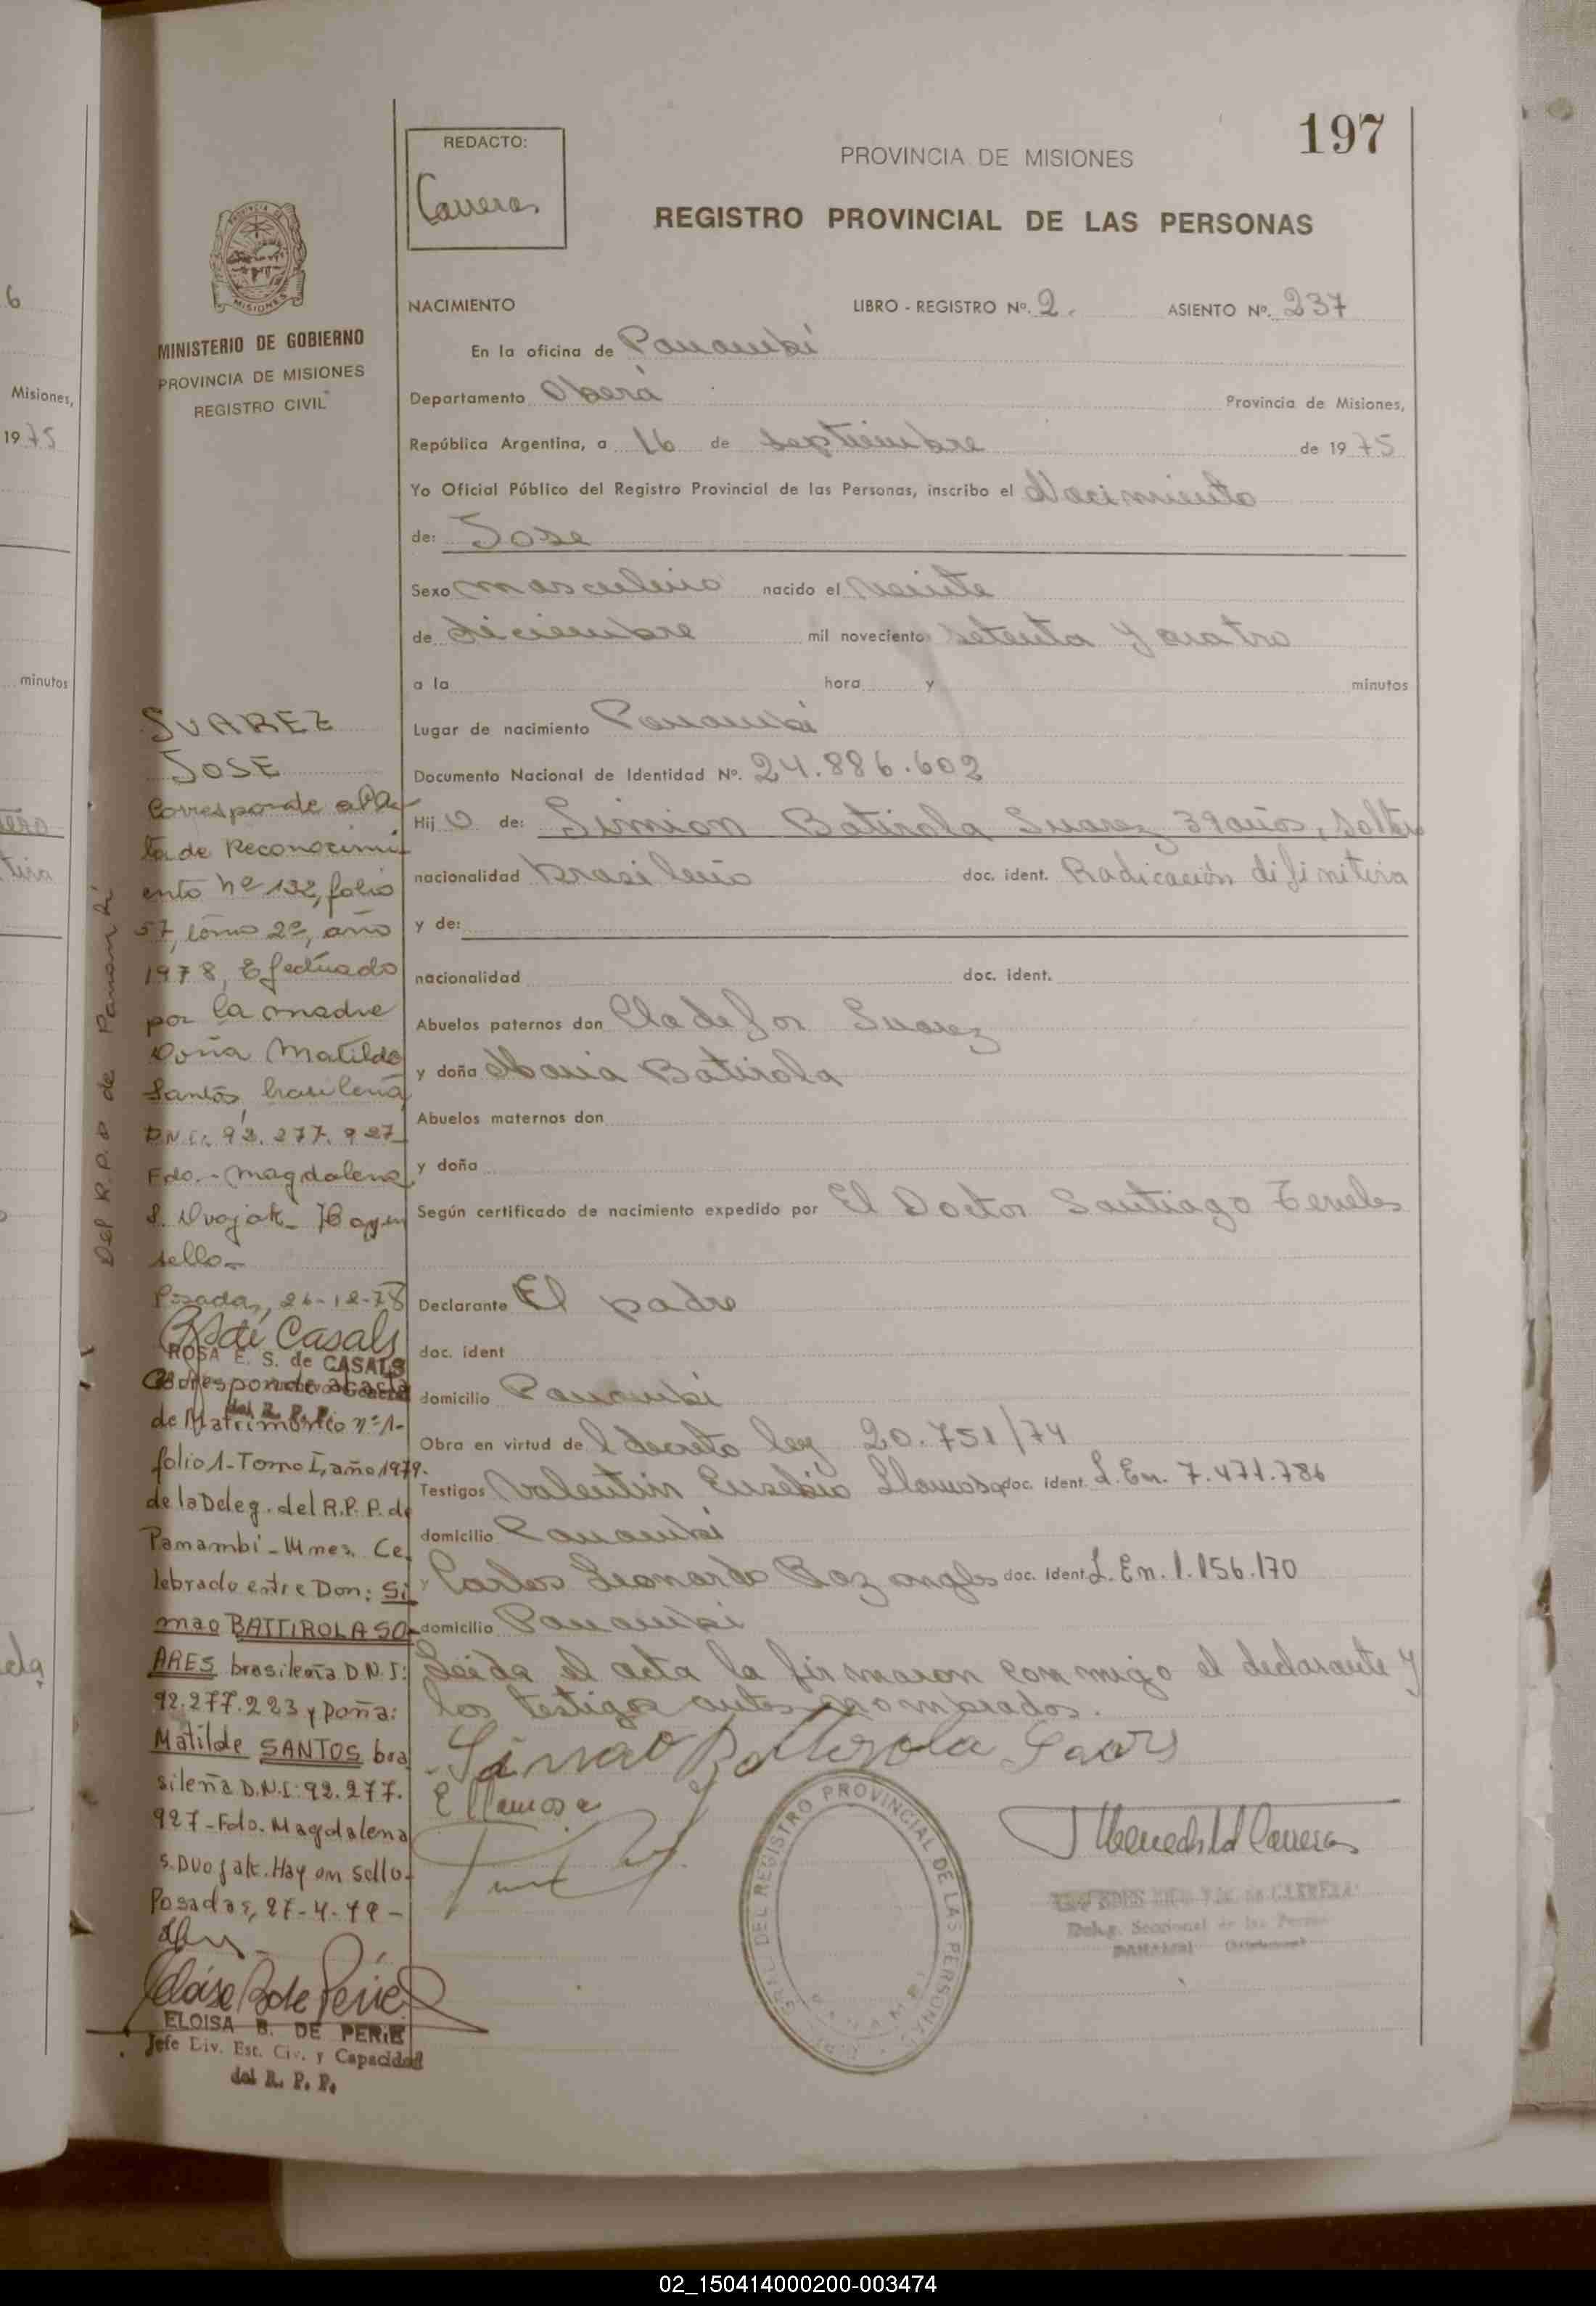 197
REDACTO:
Carreras
PROVINCIA DE MISIONES
REGISTRO PROVINCIAL DE LAS PERSONAS
NACIMIENTO LIBRO - REGISTRO Nº. 2. ASIENTO Nº. 237
En la oficina de Panambí
Departamento Oberá Provincia de Misiones,
República Argentina, a 16 de septiembre de 1975
Yo Oficial Público del Registro Provincial de las Personas, inscribo el Nacimiento
de: Jose
Sexo masculino nacido el veinte
de diciembre mil noveciento setenta y cuatro
a la hora y minutos
Lugar de nacimiento Panambi
Documento Nacional de Identidad Nº. 24.886.602
Hij o de: Simion Batirola Suarez 39 años, solte
nacionalidad brasileño doc. ident. Radicación difinitiva
y de:
nacionalidad doc. ident.
Abuelos paternos don Cladefor Suarez
y doña Maria Batirola
Abuelos maternos don
y doña
Según certificado de nacimiento expedido por El Doctor Santiago
Declarante El padre
doc. ident
domicilio Panambi
Obra en virtud de l decreto ley 20.751/74
Testigos Valentin Eusebio Llamosa doc. ident. L.En. 7.471.786
domicilio Panambi
y Carlos Leonardo doc. ident. L.En. 1.156.170
domicilio Panambi
Leida el acta la firmaron conmigo el declarante y
los testigos antes nombrados.
Simao Batterola Soares
E Llamosa
GRAL. DEL REGISTRO PROVINCIAL DE LAS PERSONAS
PANAMBI
MINISTERIO DE GOBIERNO
PROVINCIA DE MISIONES
REGISTRO CIVIL
MISIONES
SUAREZ
JOSE
Corresponde al Ac
ta de Reconocimi
ento nº 132, folio
57, tomo 2º, año
1978, Efectuado
por la madre
Doña Matilde
Santos, brasileña
D.N.I. 92.277.927
Fdo.- Magdalena
S. Duojak- Hay un
sello-
Posadas, 26-12-78
ROSA E. S. de CASALS
del R. P. P.
Corresponde al acta
de Matrimonio nº 1-
folio 1-Tomo I, año 1979-
de la Deleg. del R.P.P. de
Panambí-Mnes. Ce
lebrado entre Don: Si
mao BATTIROLA SO-
ARES brasileña D.N.I:
92.277.223 y Doña:
Matilde SANTOS bra
sileña D.N.I: 92.277.
927-Fdo. Magdalena
S. Duojak. Hay un sello-
Posadas, 27-4-79-
ELOISA B. DE PERIE
Jefe Div. Est. Civ. y Capacidad
del R. P. P.
Del R.P.P de Panambí
6
Misiones,
1975
minutos
02_150414000200-003474